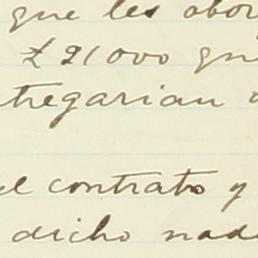 que les abor
£ 21000 que
tregarian
el contrato y
dicho nada